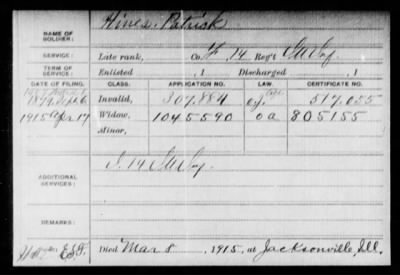 Hines, Patrick
NAME OF SOLDIER:
SERVICE: Late rank, Co. 14 Reg't Ill Inf.
TERM OF SERVICE: Enlisted , 1 Discharged , 1
DATE OF FILING. CLASS. APPLICATION NO. LAW. CERTIFICATE NO.
1879 Invalid, 307.884 517.055
1915 Apr 17 Widow, 1045590 oa 805155
Minor,
ADDITIONAL SERVICES: I. 14 Ill Inf.
REMARKS:
Died Mar 8 , 1915, at Jacksonville, Ill.